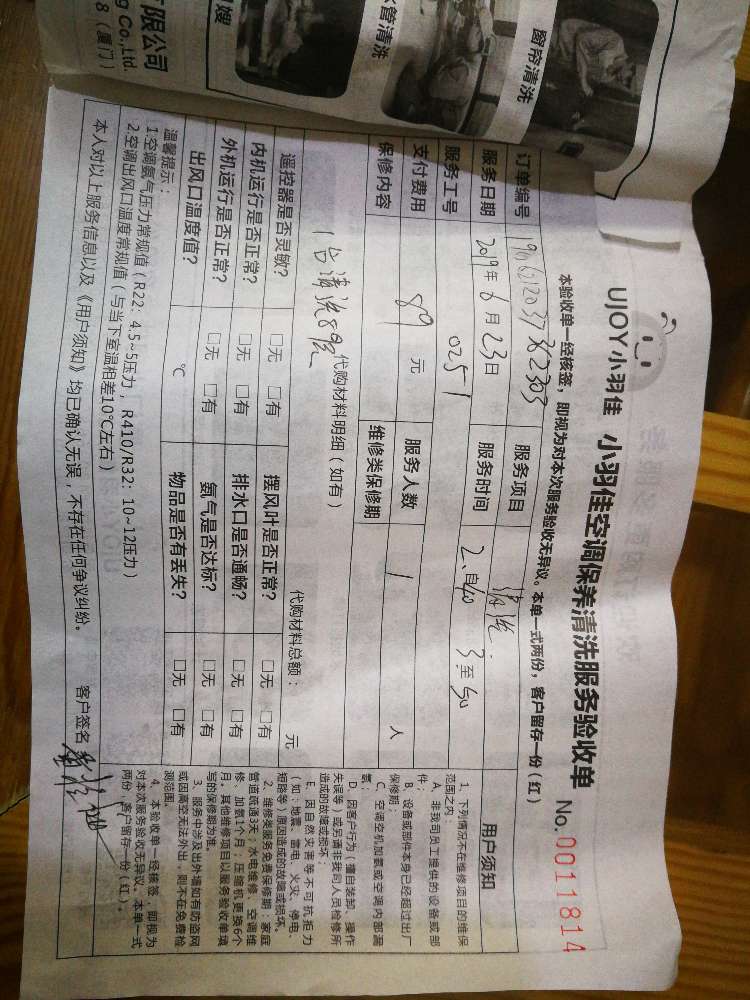 有限公司
g Co.,Ltd.
8（厦门）
嫂
水管清洗
窗帘清洗
UJOY小羽佳 小羽佳空调保养清洗服务验收单 No.0011814
本验收单一经核签，即视为对本次服务验收无异议。本单一式两份，客户留存一份（红）
订单编号 服务项目 清洗
服务日期 2019年6月23日 服务时间 2:40至3:50
服务工号 0251
支付费用 89元 服务人数 1人
保修内容 维修类保修期
代购材料明细（如有）
1台清洗89元
代购材料总额： 元
遥控器是否灵敏？ □无 □有 摆风叶是否正常？ □无 □有
内机运行是否正常？ □无 □有 排水口是否通畅？ □无 □有
外机运行是否正常？ □无 □有 氨气是否达标？ □无 □有
出风口温度值？ ℃ 物品是否有丢失？ □无 □有
温馨提示：
1.空调氨气压力常规值（R22：4.5~5压力，R410/R32：10~12压力）
2.空调出风口温度常规值（与当下室温相差10℃左右）
本人对以上服务信息以及《用户须知》均已确认无误，不存在任何争议纠纷。 客户签名
用户须知
1、下列情况不在维修项目的维保
范围之内：
A、非我司员工提供的设备或部
件；
B、设备或部件本身已经超过出厂
保修期；
C、空调空机加氨或空调内部漏
氨；
D、因客户行为（擅自装卸、操作
失误等）或另请非我司人员检修所
造成的故障或损坏
E、因自然灾害等不可抗拒力
（如：地震、雷电、火灾、停电、
短路等）原因造成的故障或损坏。
2、维修类服务免费保修期：家庭
管道疏通3天，水电维修、空调维
修、加氨1个月；压缩机更换6个
月；其他维修项目以服务验收单填
写的保修期为准。
3、服务中涉及出外墙如有防盗网
或因高空无法外出，则不在免费检
测范围。
4、本验收单一经核签，即视为
对本次服务验收无异议。本单一式
两份，客户留存一份（红）。